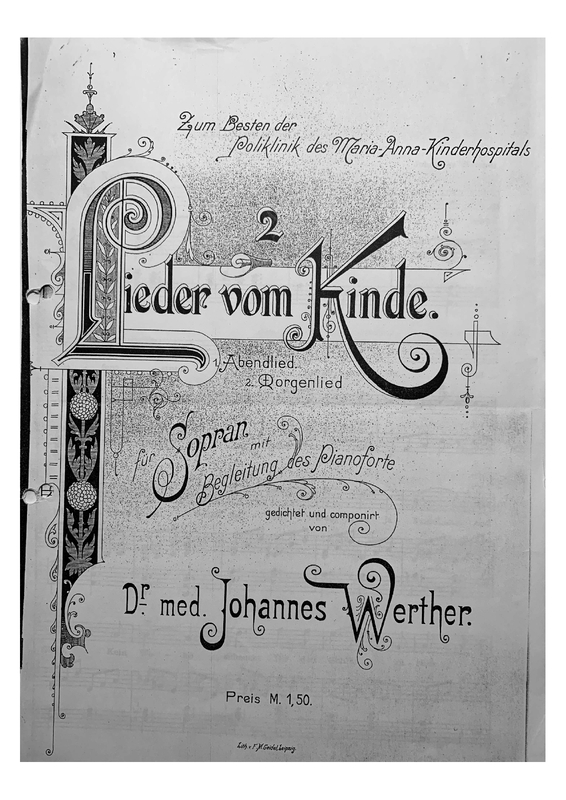 Zum Besten der
Poliklinik des Maria-Anna-Kinderhospitals
2
Lieder vom Kinde.
1. Abendlied.
2. Morgenlied
für Sopran mit
Begleitung des Pianoforte
gedichtet und componirt
von
Dr med. Johannes Werther.
Preis M. 1,50.
Lith. v. F. M. Geidel, Leipzig.